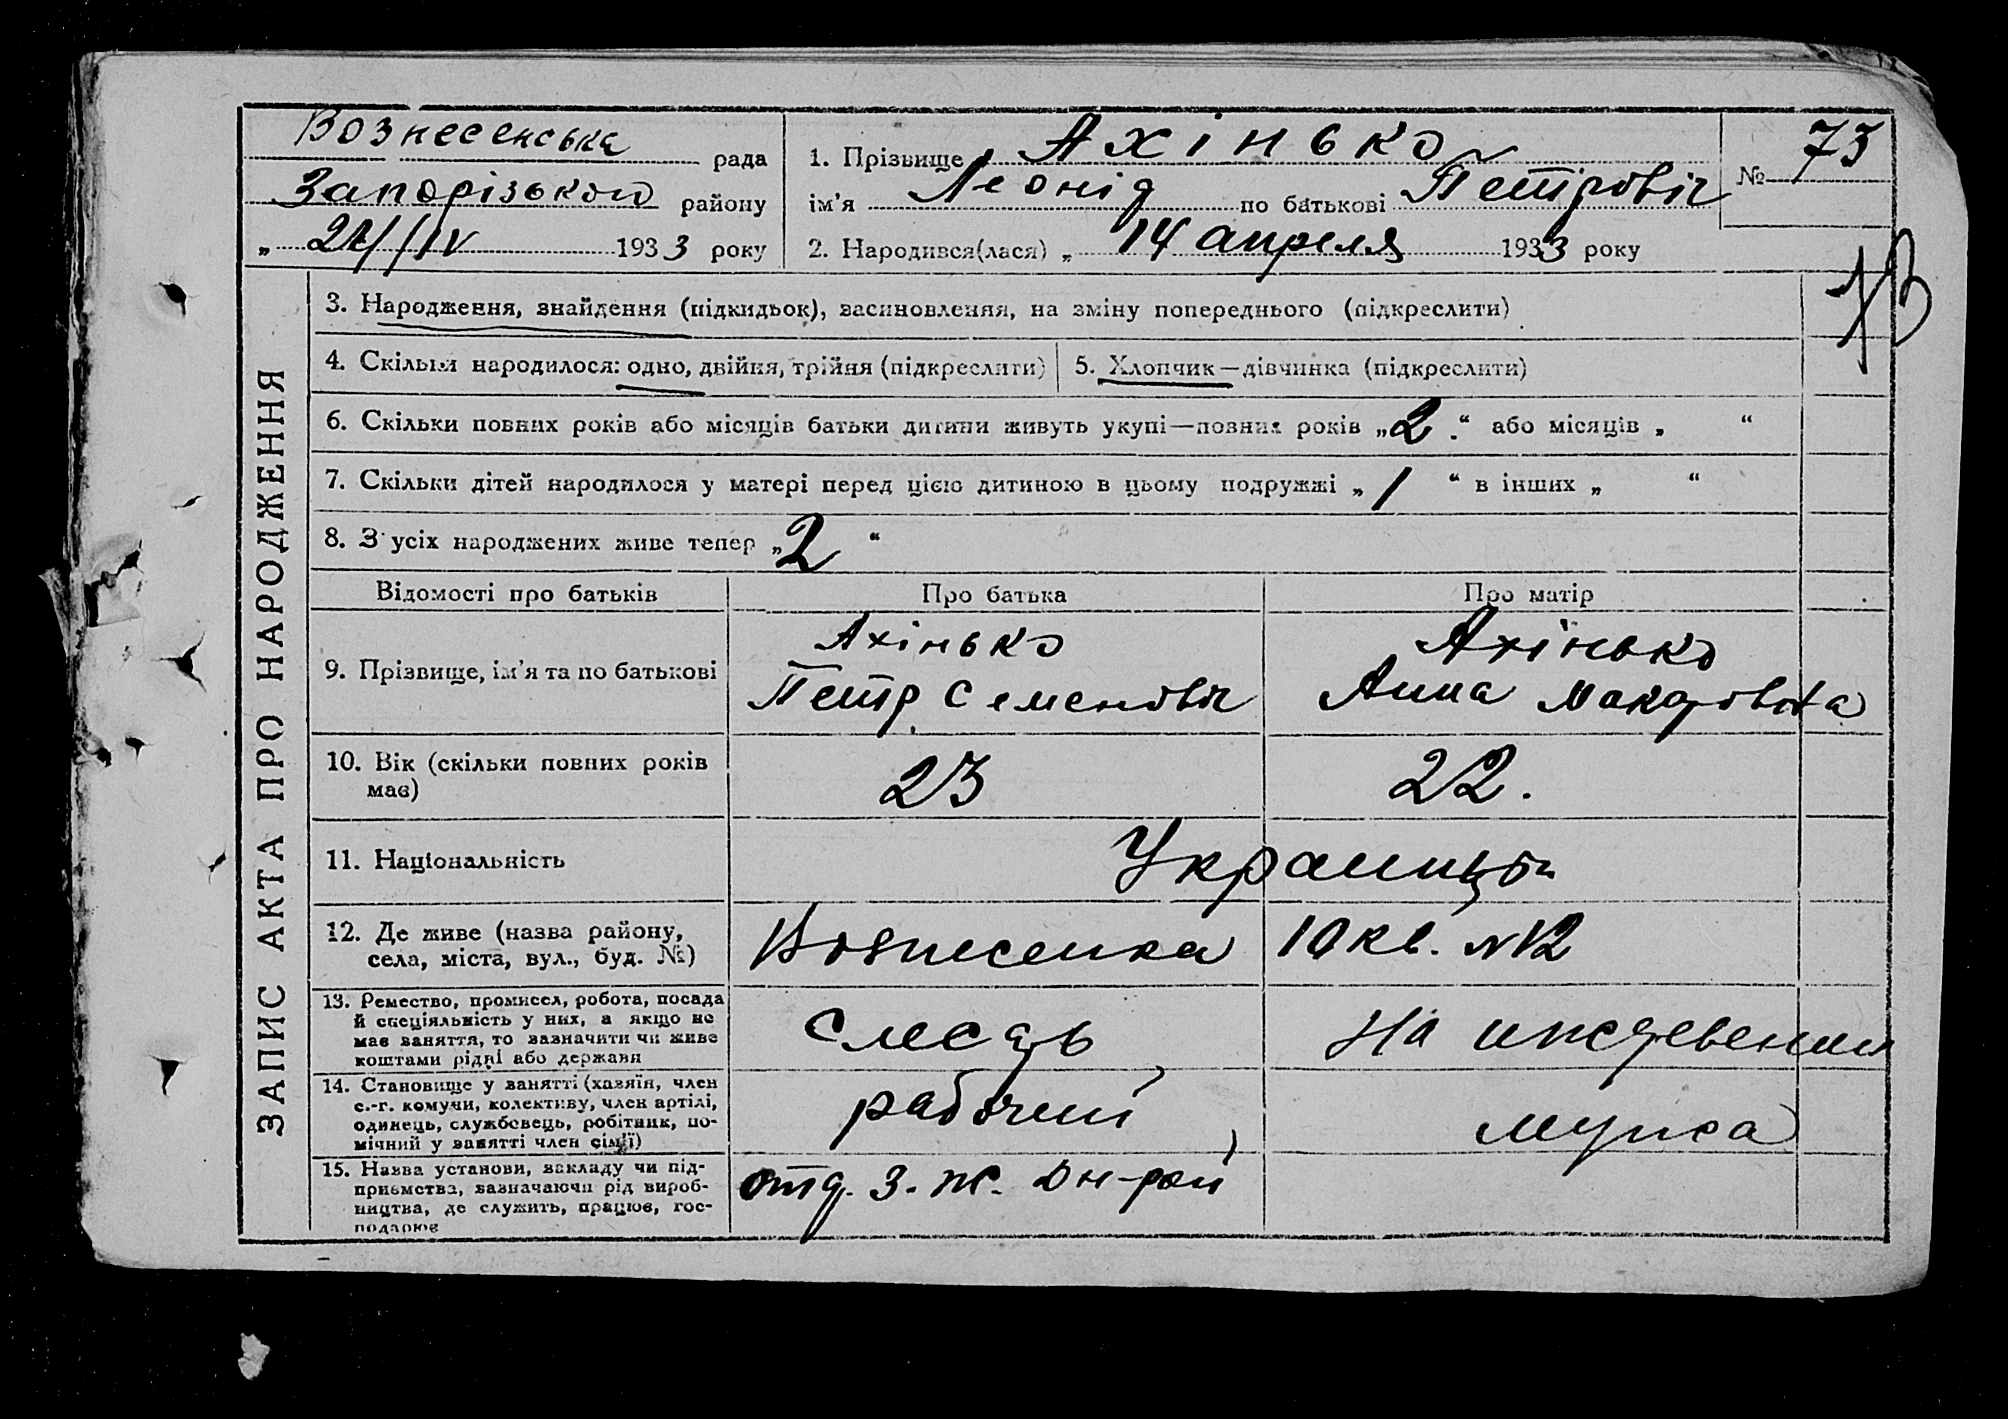 Вознесенська рада
Запорізького району
„ 21/IV 1933 року
1. Прізвище Ахінько
ім'я Леонід по батькові Петровіч
2. Народився(лася) „ 14 апреля 1933 року
№ 73
13
ЗАПИС АКТА ПРО НАРОДЖЕННЯ
3. Народження, знайдення (підкидьок), засиновлення, на зміну попереднього (підкреслити)
4. Скільки народилося: одно, двійня, трійня (підкреслити)
5. Хлопчик — дівчинка (підкреслити)
6. Скільки повних років або місяців батьки дитини живуть укупі—повних років „2“ або місяців „ “
7. Скільки дітей народилося у матері перед цією дитиною в цьому подружжі „1“ в інших „ “
8. З усіх народжених живе тепер „2“
Відомості про батьків
Про батька
Про матір
9. Прізвище, ім'я та по батькові
Ахінько
Петр Семеновіч
Ахінько
Анна
10. Вік (скільки повних років
має)
23
22.
11. Національність
Украинцы
12. Де живе (назва району,
села, міста, вул., буд. №)
Вознесенка 10 кв. №12
13. Ремество, промисел, робота, посада
й спеціяльність у них, а якщо не
має заняття, то зазначити чи живе
коштами рідні або держави
Слесарь
На иждевении
14. Становище у занятті (хазяїн, член
с.-г. комуни, колективу, член артілі,
одинець, службовець, робітник, по-
мічний у занятті член сім'ї)
рабочий
мужа
15. Назва установи, закладу чи під-
приємства, зазначаючи рід вироб-
ництва, де служить, працює, гос-
подарює
отд. З. Ж.